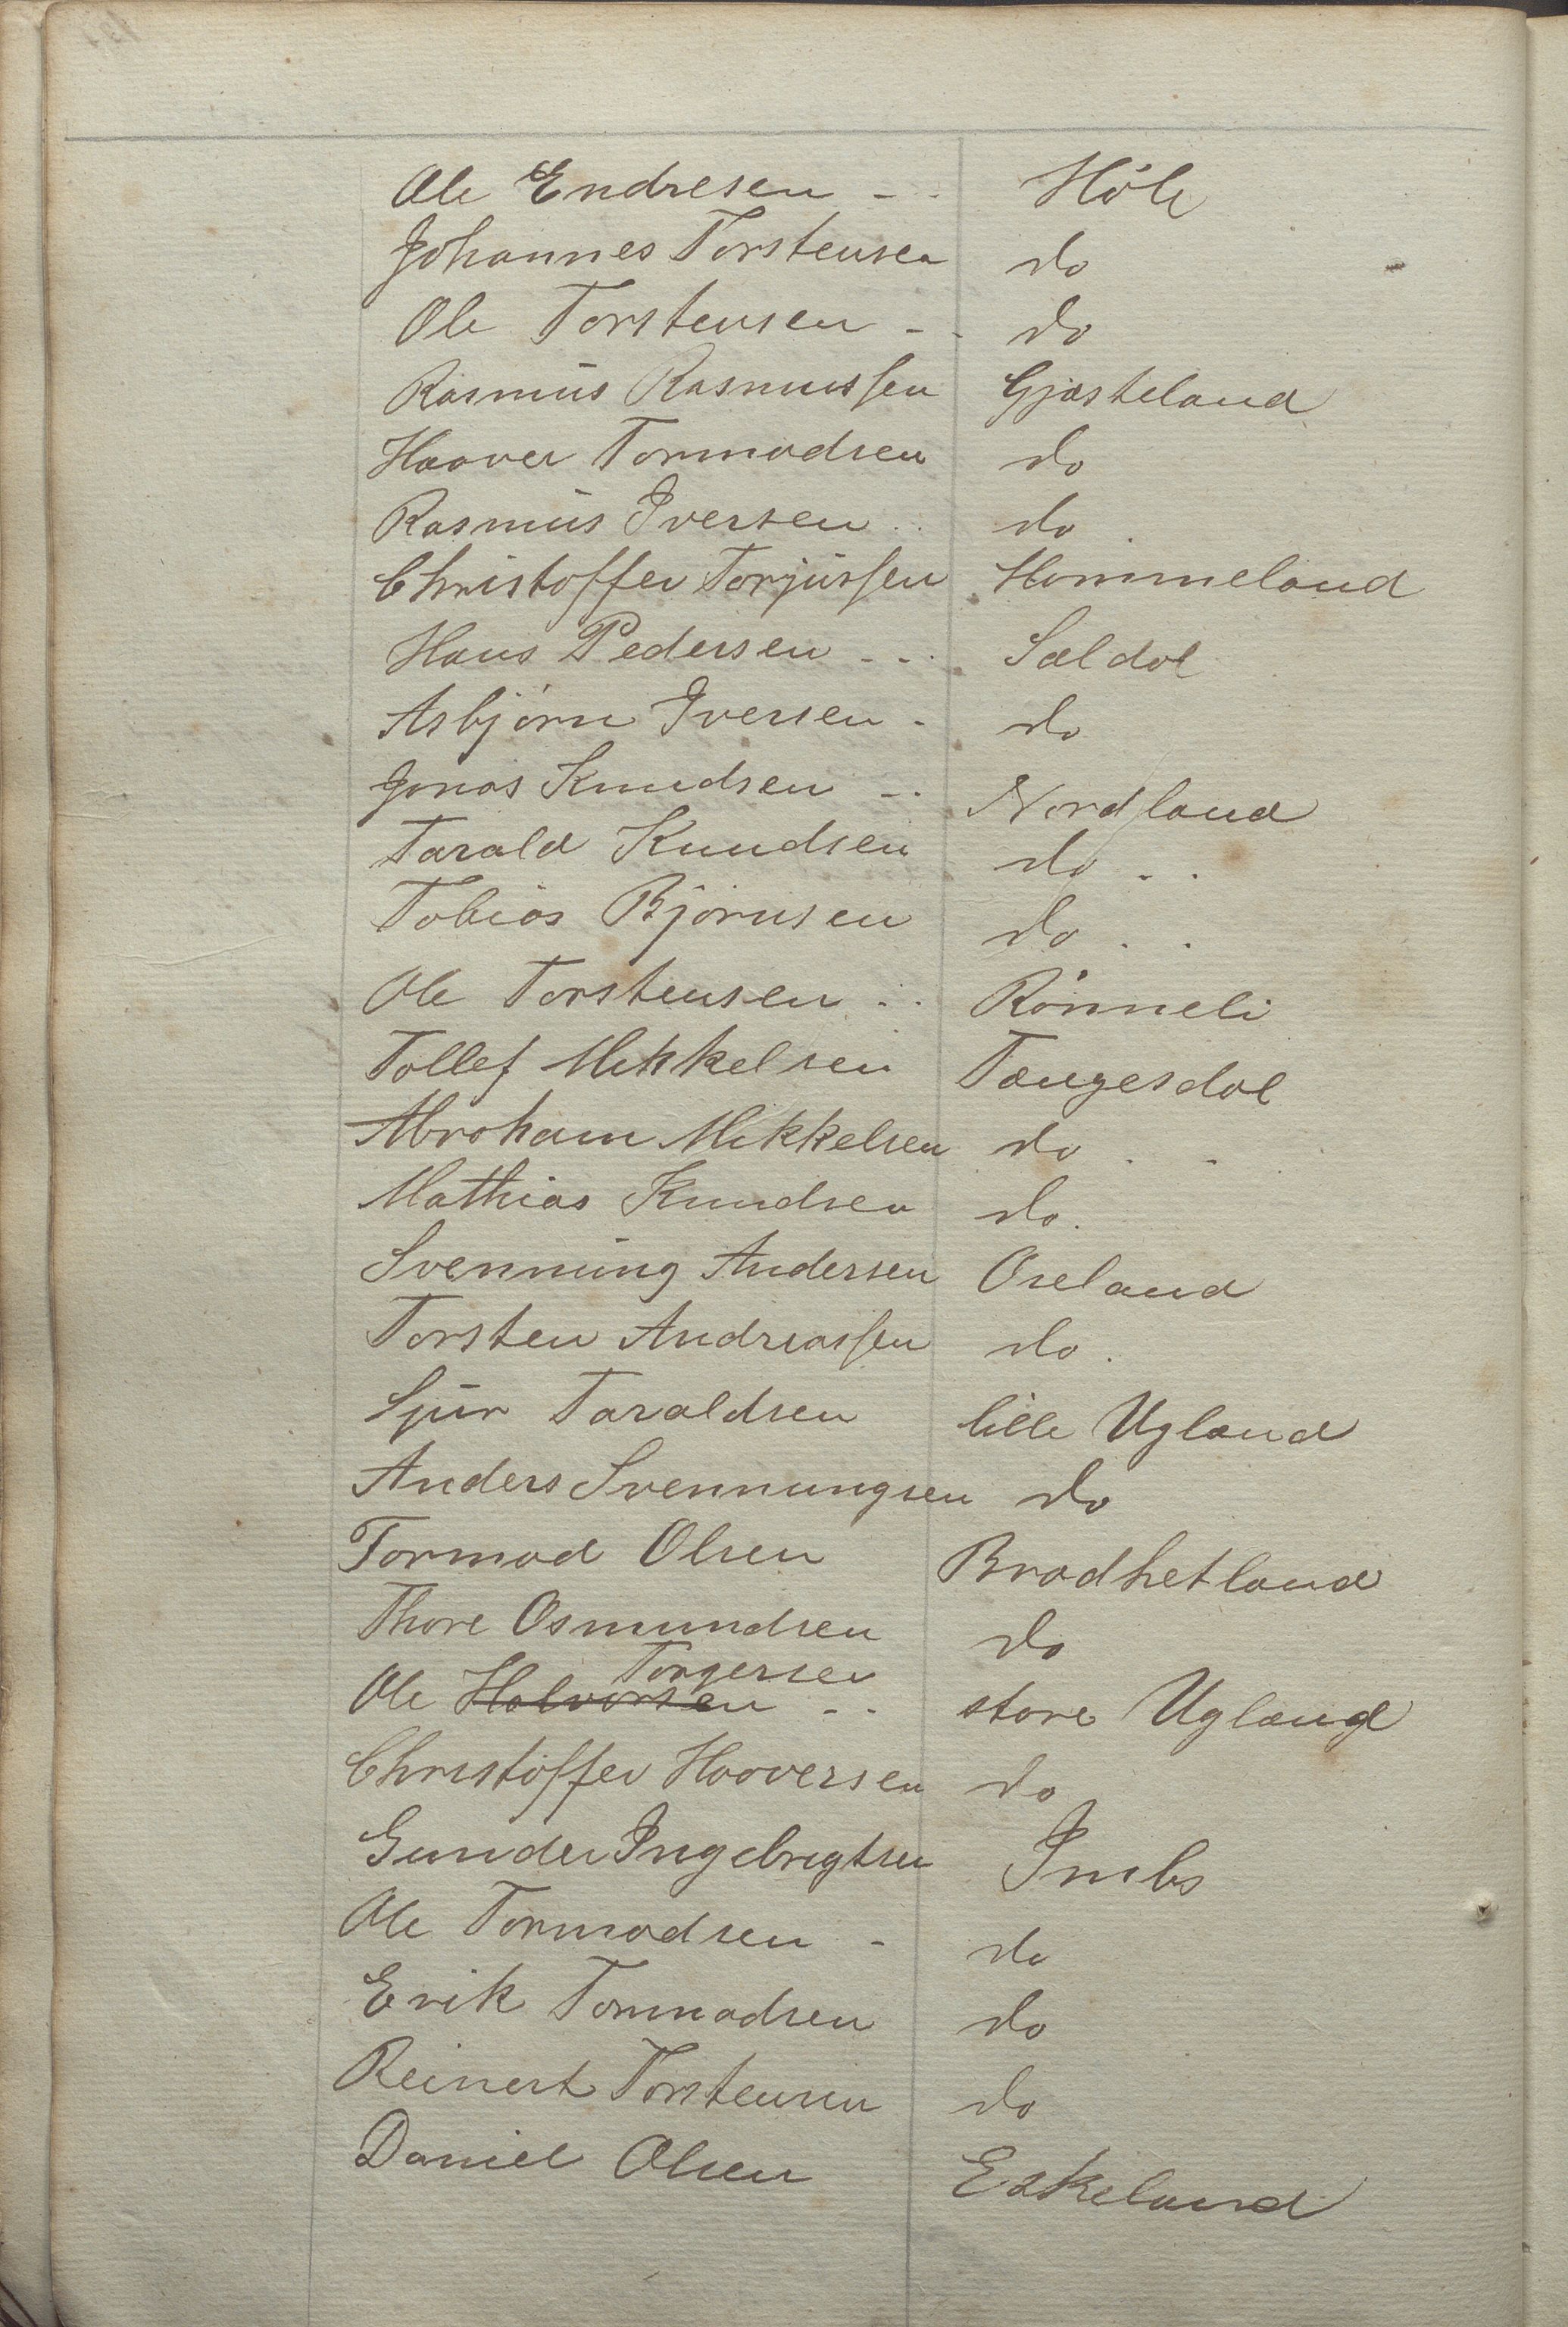 Ole Endresen - - Höle
Johannes Torstensen do
Ole Torstensen - - do
Rasmus Rasmussen Gjæsteland
Haaver Tormodsen do
Rasmus Iversen . . do .
Christoffer Torjussen Hommeland
Hans Pedersen - - . Sældal
Asbjörn Iversen - do
Jonas Knudsen - . Nordland
Tarald Knudsen do . .
Tobias Björnsen do . .
Ole Torstensen . . Rönneli
Tollef Mikkelsen Tængesdal
Abraham Mikkelsen do . .
Mathias Knudsen do .
Svennung Andersen Oseland
Torsten Andreassen do .
Sjur Taraldsen lille Ugland
Anders Svennungsen do
Tormod Olsen Bradhetland
Thore Osmundsen do
Torgersen
Ole Halvorsen - . store Ugland
Christoffer Haaversen do
Gunder Ingebrigtsen Imbs
Ole Tormodsen - do
Erik Tormodsen do
Reinert Torstensen do
Daniel Olsen Eskeland